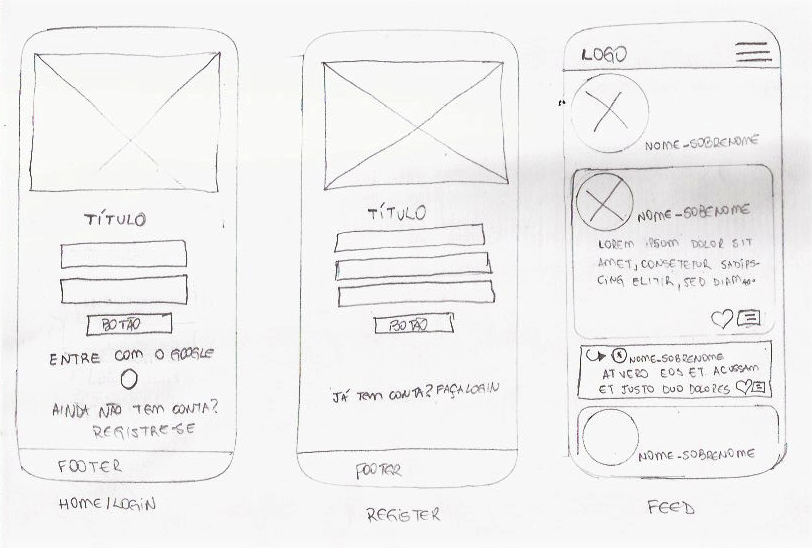 TÍTULO
BOTÃO
ENTRE COM O GOOGLE
AINDA NÃO TEM CONTA?
REGISTRE-SE
FOOTER
HOME/LOGIN
TÍTULO
BOTÃO
JÁ TEM CONTA? FAÇA LOGIN
FOOTER
REGISTER
LOGO
NOME-SOBRENOME
NOME-SOBENOME
LOREM IPSUM DOLOR SIT
AMET, CONSETETUR SADIPS-
CING ELITIR, SED DIAM
NOME-SOBRENOME
AT VERO EOS ET ACUSSAM
ET JUSTO DUO DOLORES
NOME-SOBRENOME
FEED